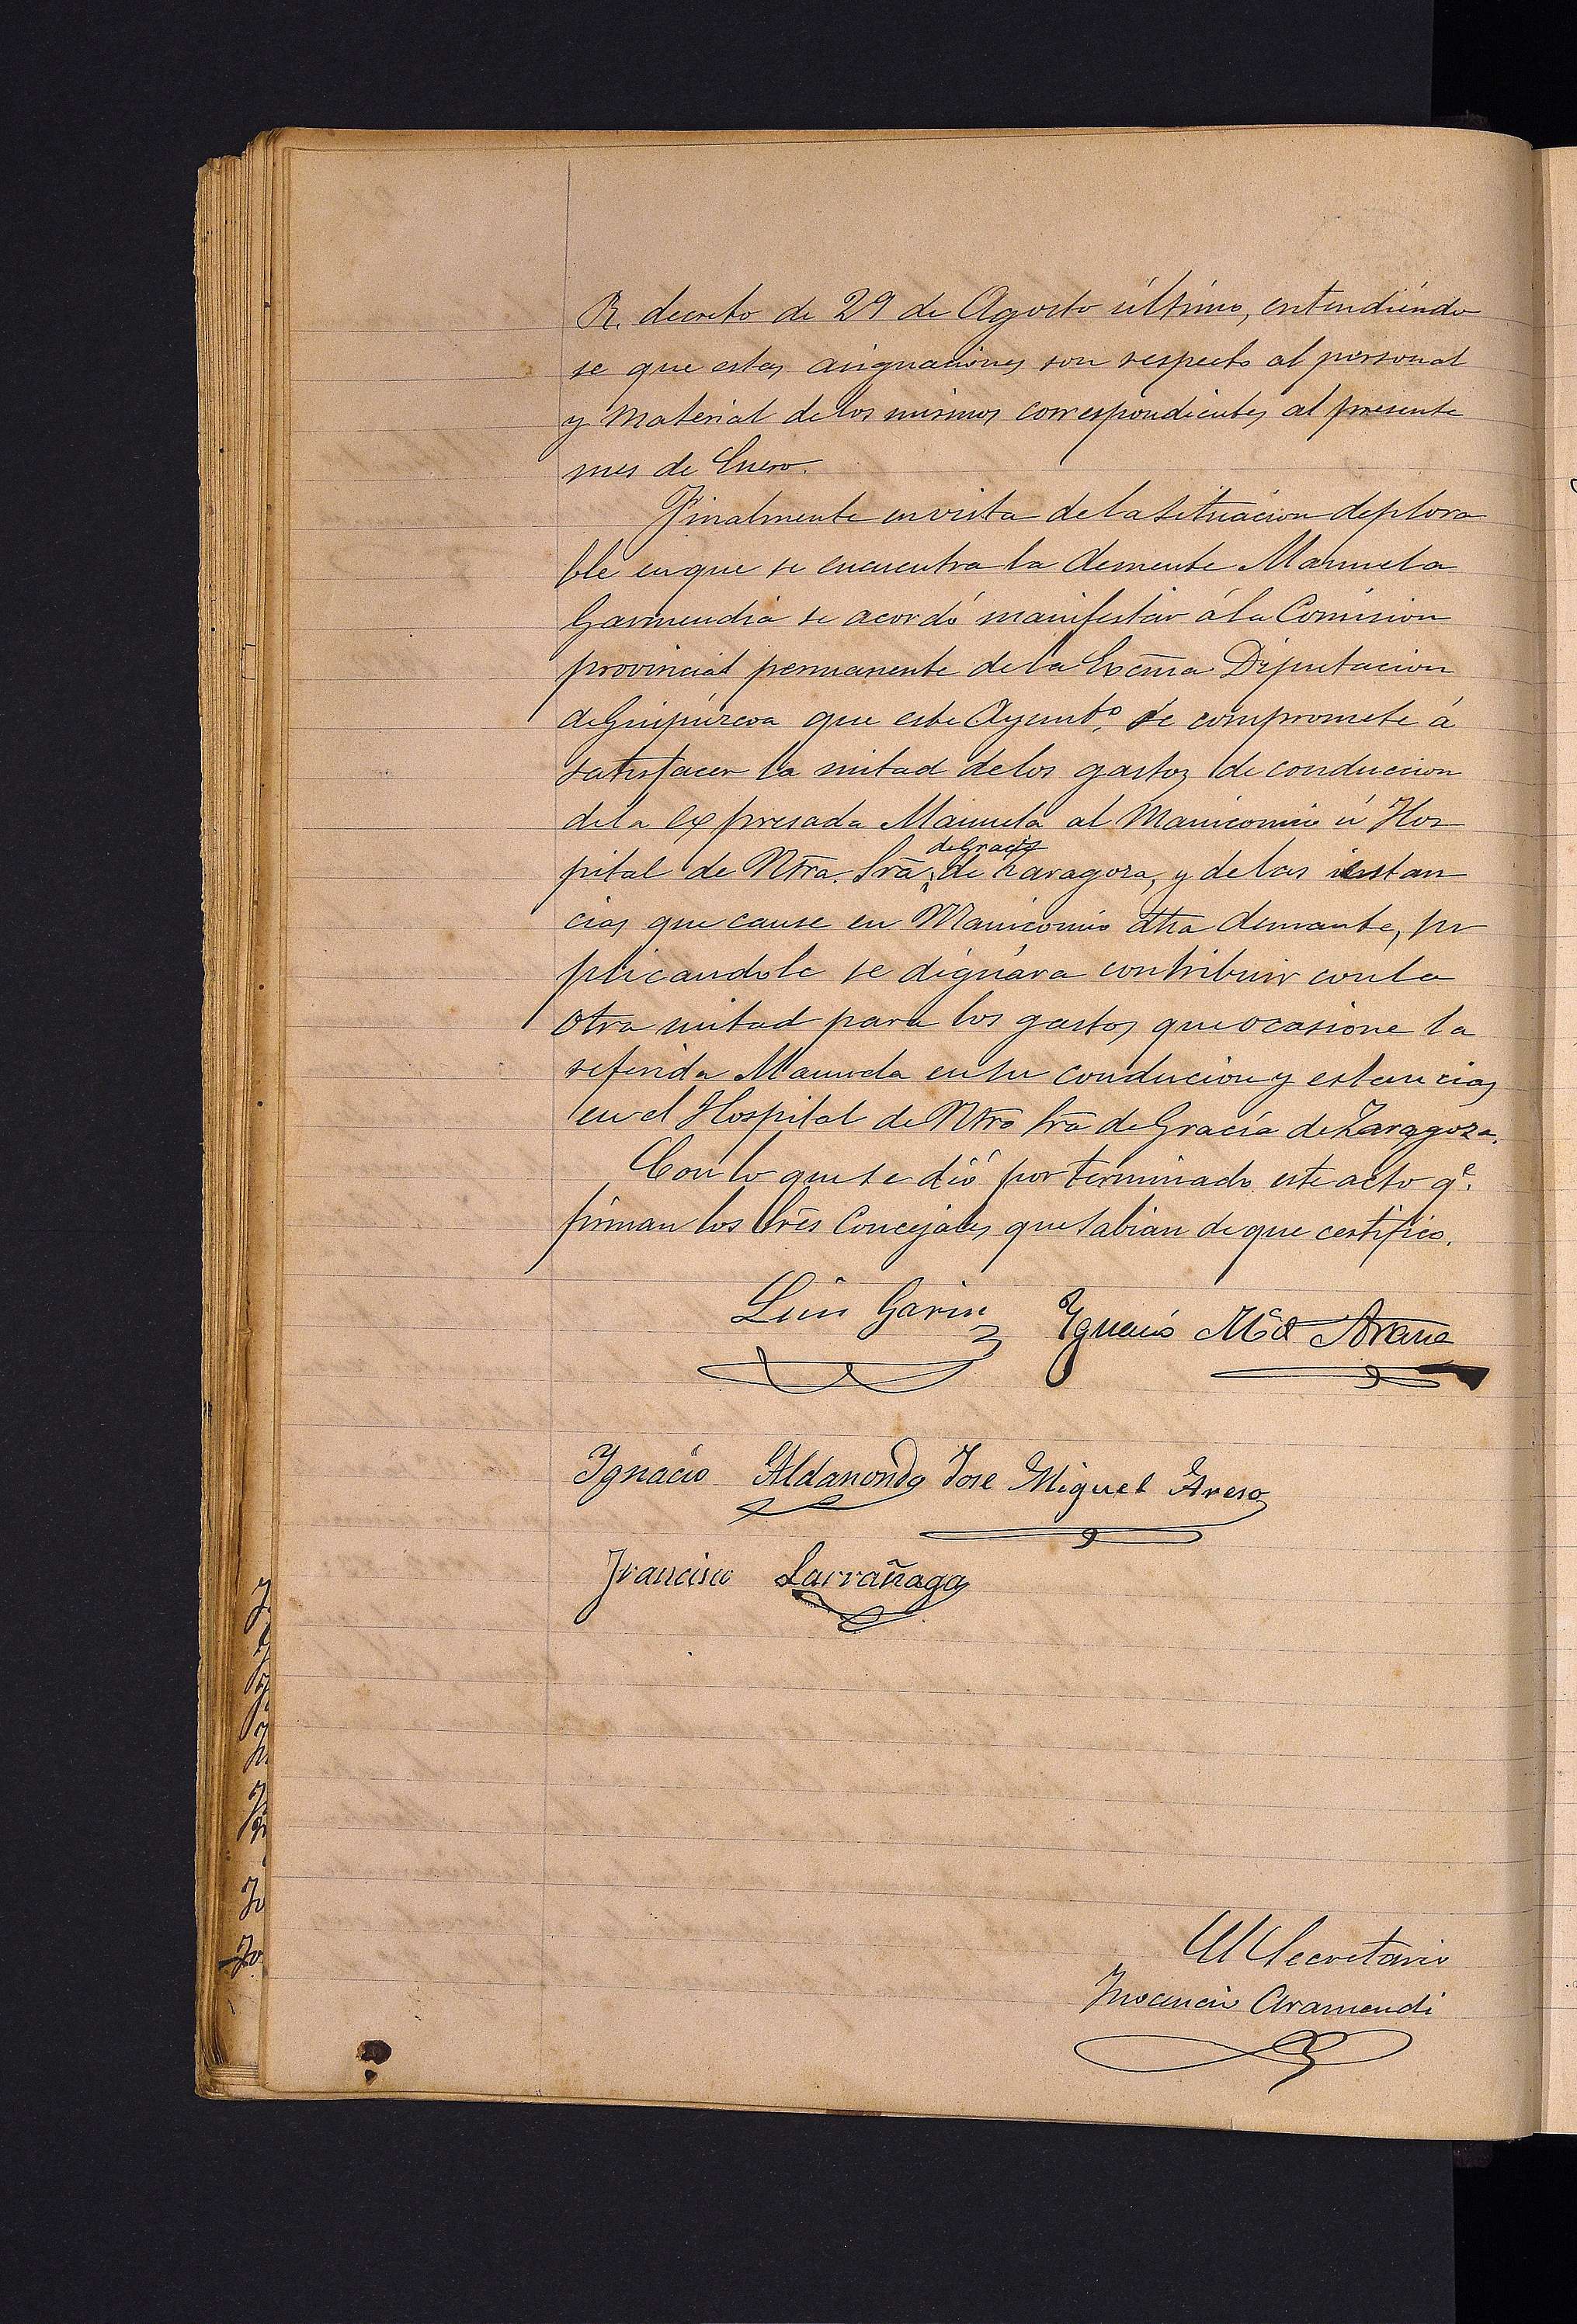 R. decreto de 29 de Agosto último, entendiéndo
se que estas asignaciones son respecto al personal
y material de los mismos correspondientes al presente
mes de Enero.
Finalmente en vista de la situación deplora
ble en que se encuentra la demente Manuela
Garmendia se acordó manifestar á la Comision
provincial permanente de la Excma Diputacion
de Guipúzcoa que este Ayunto. se compromete á
satisfacer la mitad de los gastos de conduccion
de la expresada Manuela al Manicomio ú Hos
de Gracia
pital de Ntra. Sra, de Zaragoza, y de las estan
cias que cause en Manicomio dha demante, su
plicandole se dignára contribuir con la
otra mitad para los gastos que ocasione la
referida Manuela en su conducion y estancias
en el Hospital de Ntra Sra de Gracia de Zaragoza.
Con lo que se dió por terminado este acto qe.
firman los Sres Concejales que sabian de que certifico.
Luis Garin
Ygnacio Ma Arana
Ignacio Aldanondo Jose Miguel Areso
Francisco Larrañaga
El Secretario
Inocencio Aramendi